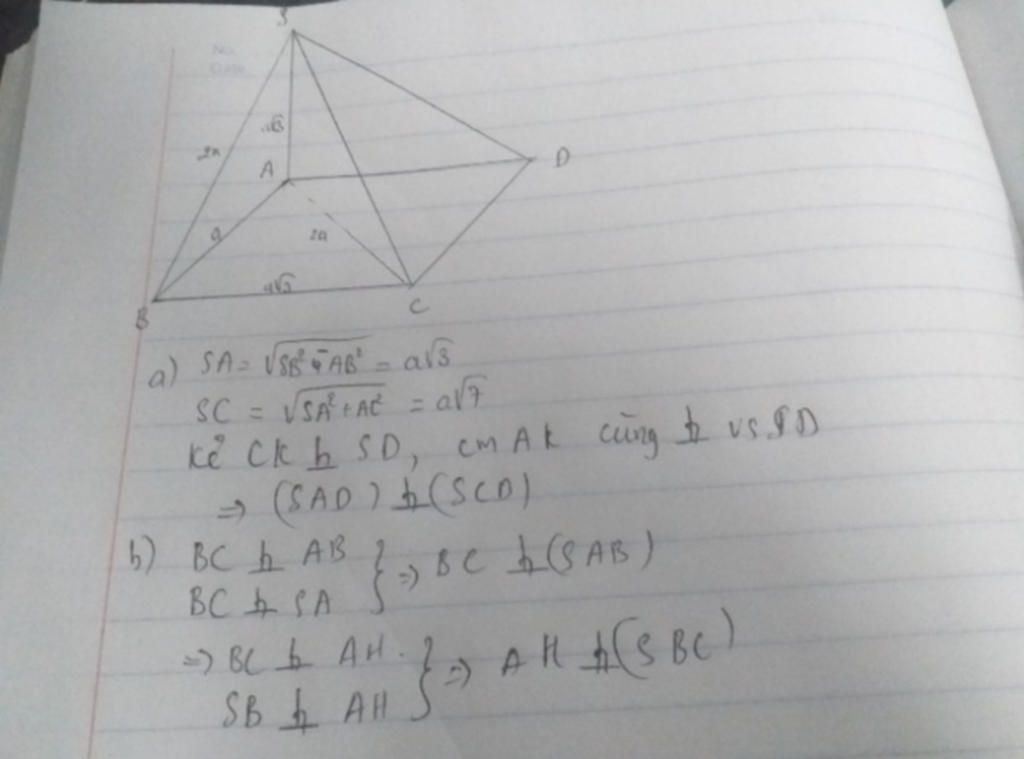 S
No.
Date
a√3
2a
A
D
a
2a
a√3
B
C
a) SA = √SB² - AB² = a√3
SC = √SA² + AC² = a√7
Kẻ CK ⊥ SD, cm AK cũng ⊥ vs SD
⇒ (SAD) ⊥ (SCD)
b) BC ⊥ AB
BC ⊥ SA } ⇒ BC ⊥ (SAB)
⇒ BC ⊥ AH
SB ⊥ AH } ⇒ AH ⊥ (SBC)